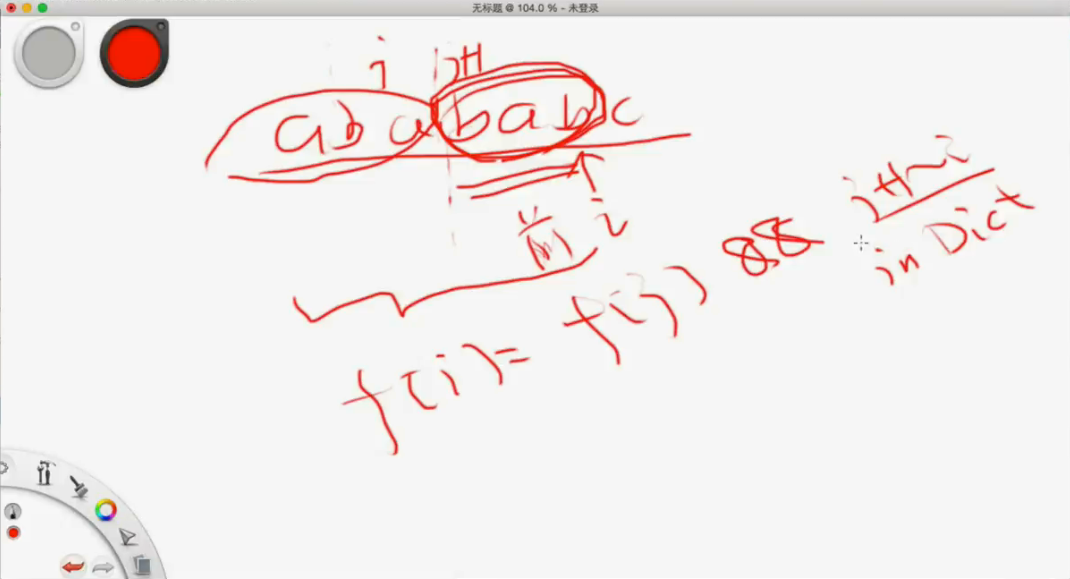 无标题 @ 104.0 % - 未登录
j j+1
ababab c
前 i
f(i) = f(j) && j+1~i in Dict